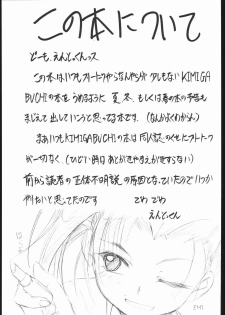 この本について
どーも、えんどっくんっス
この本はいつもフリートークやらなんやらが少しもない KIMIGA
BUCHIの本をうめるように夏、冬、もしくは春の本の予告も
まじえて出していこうと思ってる本です。(なんかよくわからん)
まあいつもKIMIGABUCHIの本は同人誌のくせにフリートーク
が一切なく(ひどい時はあとがきやまえがきすらない)
前から読者の正体不明説の原因となっていたのでいつか
作りたいと思ってたのです でわでわ
えんどっくん